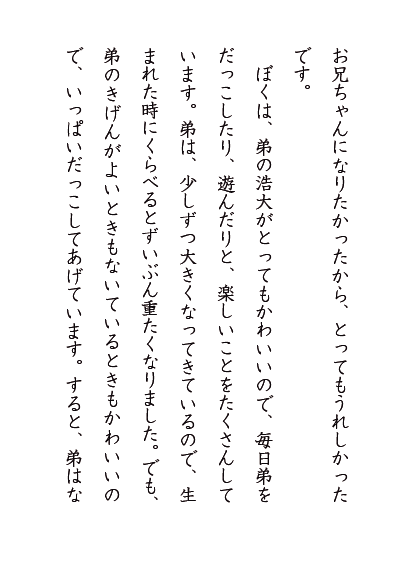 お兄ちゃんになりたかったから、とってもうれしかった
です。
　ぼくは、弟の浩大がとってもかわいいので、毎日弟を
だっこしたり、遊んだりと、楽しいことをたくさんして
います。弟は、少しずつ大きくなってきているので、生
まれた時にくらべるとずいぶん重たくなりました。でも、
弟のきげんがよいときもないているときもかわいいの
で、いっぱいだっこしてあげています。すると、弟はな